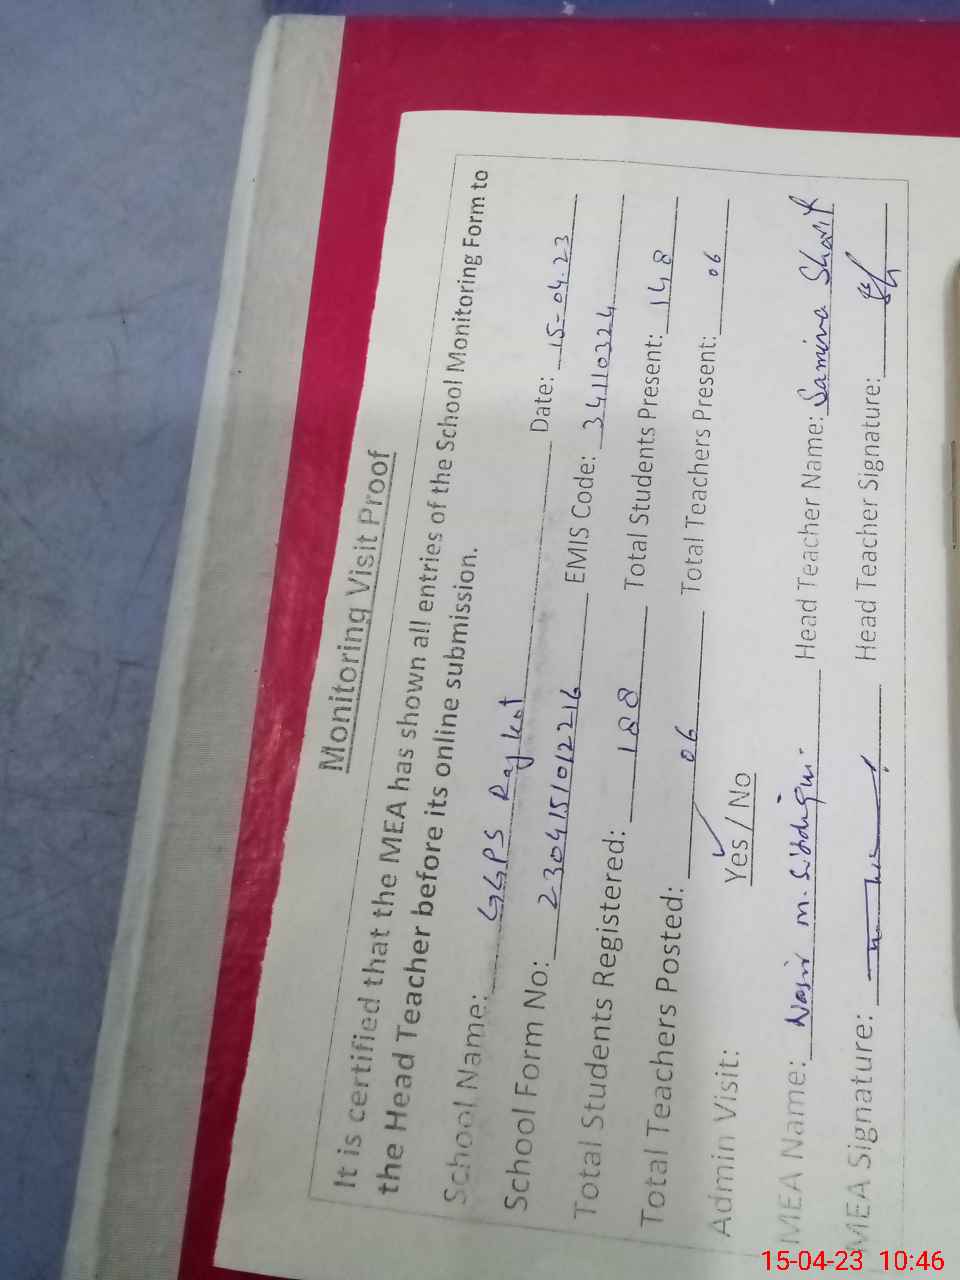 Monitoring Visit Proof
It is certified that the MEA has shown all entries of the School Monitoring Form to
the Head Teacher before its online submission.
School Name: GGPS Raj Kot Date: 15-04-23
School Form No: 2304151012216 EMIS Code: 34110324
Total Students Registered: 188 Total Students Present: 148
Total Teachers Posted: 06 Total Teachers Present: 06
Admin Visit: Yes / No
MEA Name: Nasir M. Siddiqui. Head Teacher Name: Samina Sharif
MEA Signature: Head Teacher Signature:
15-04-23 10:46